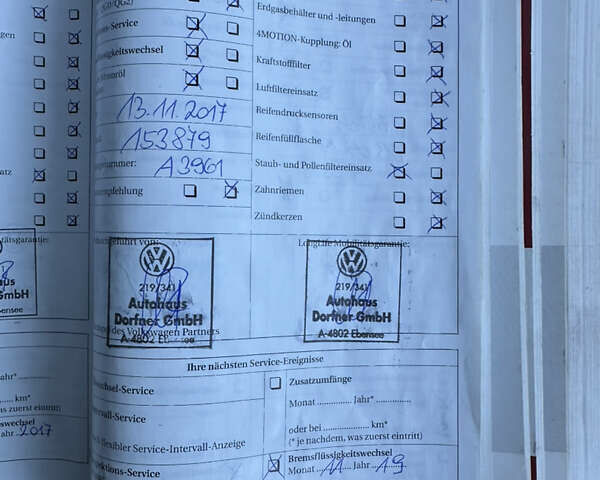 (G0/QG2)
ns-Service
sigkeitswechsel
Motoröl
13.11.2017
153879
nummer: A3961
empfehlung
Erdgasbehälter und -leitungen
4MOTION-Kupplung: Öl
Kraftstofffilter
Luftfiltereinsatz
Reifendrucksensoren
Reifenfüllflasche
Staub- und Pollenfiltereinsatz
Zahnriemen
Zündkerzen
hgeführt von:
LongLife Mobilitätsgarantie:
219/341
Autohaus
Dorfner GmbH
A-4802 Ebensee
des Volkswagen Partners
219/341
Autohaus
Dorfner GmbH
A-4802 Ebensee
itätsgarantie:
aus
GmbH
ensee
Ihre nächsten Service-Ereignisse
chsel-Service
rvall-Service
flexibler Service-Intervall-Anzeige
ektions-Service
Zusatzumfänge
Monat ............... Jahr* ...............
oder bei .................... km*
(* je nachdem, was zuerst eintritt)
Bremsflüssigkeitswechsel
Monat ...11... Jahr ...19
ahr* ............
.......... km*
as zuerst eintritt)
swechsel
ahr 2017